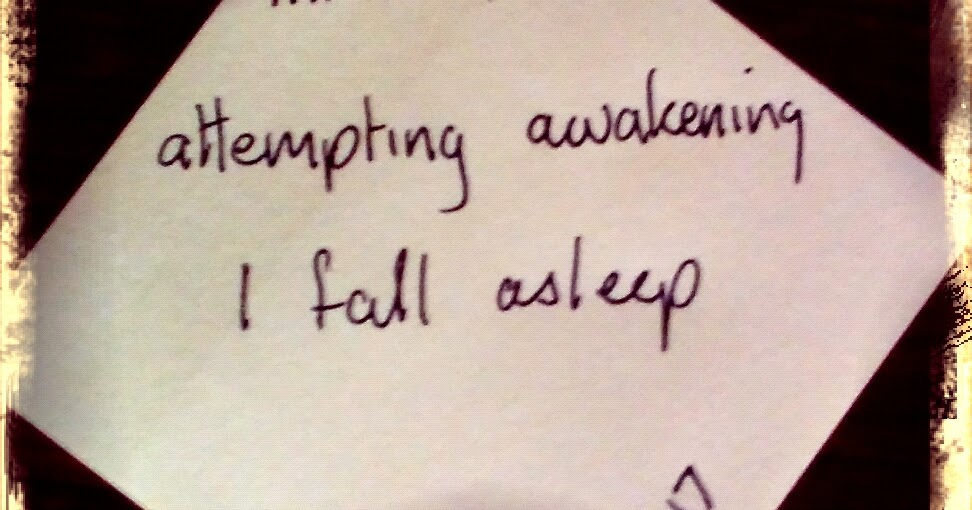 attempting awakening
I fall asleep